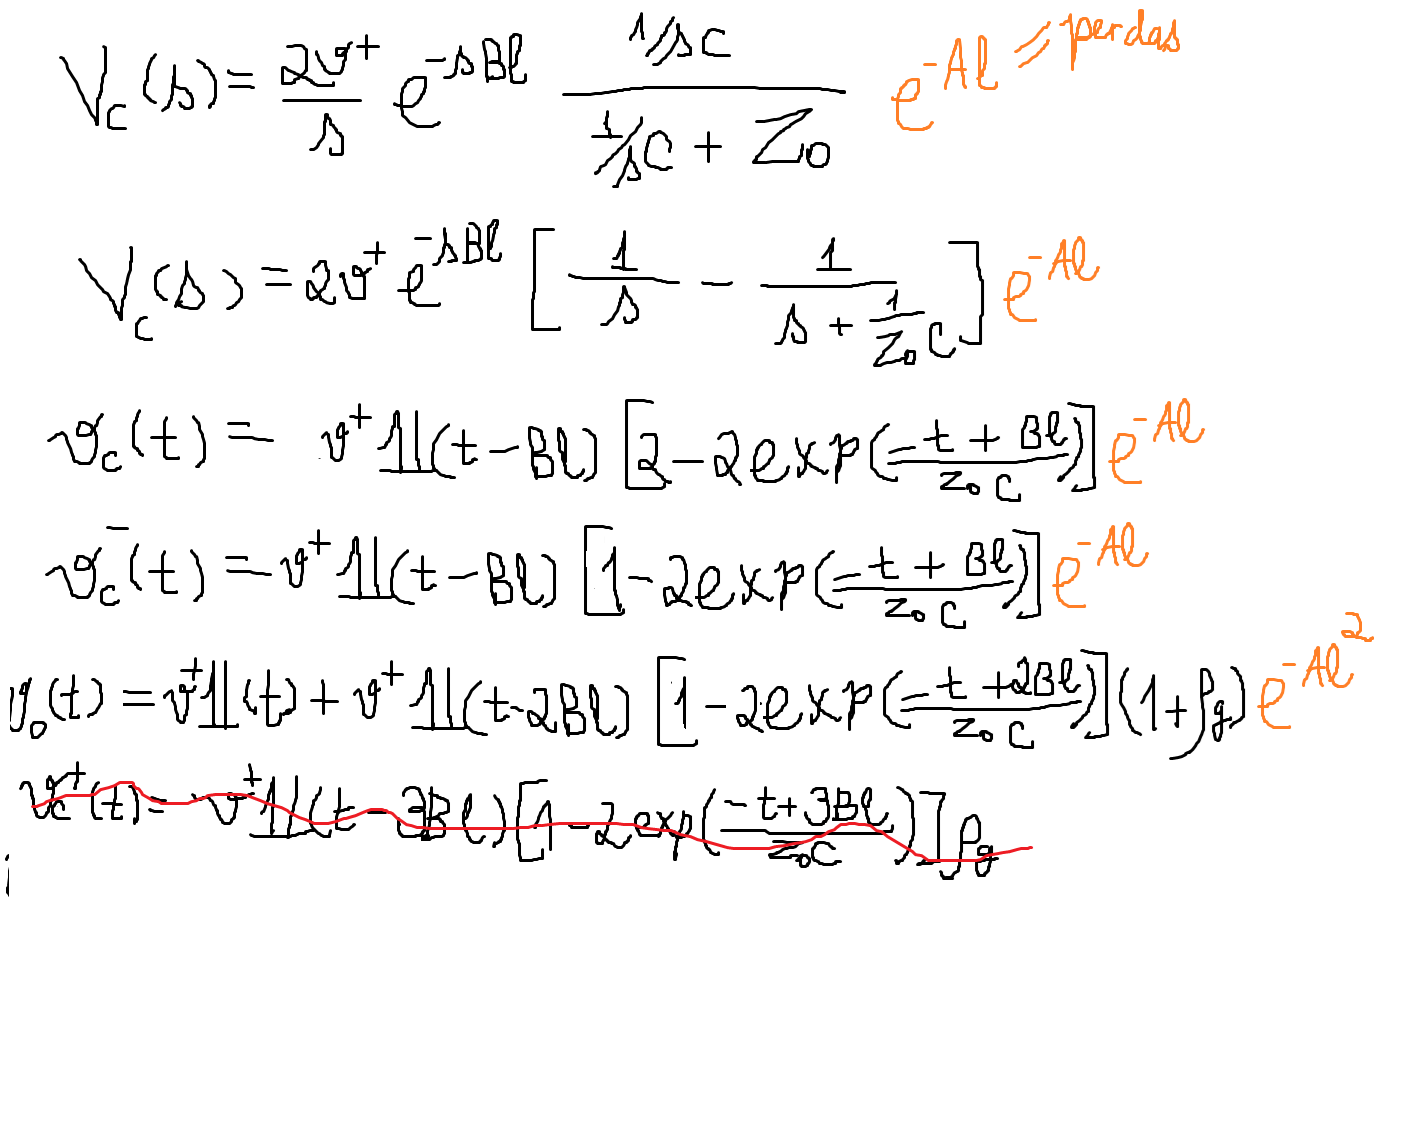 V_c(s) = 2v⁺/s e^(-sBl) (1/sC)/(1/sC + Z₀) e^(-Al) ⇒ perdas
V_c(s) = 2v⁺ e^(-sBl) [1/s - 1/(s + 1/(Z₀C))] e^(-Al)
v_c(t) = v⁺ 1(t - Bl) [2 - 2exp((-t + Bl)/(Z₀C))] e^(-Al)
v_c⁻(t) = v⁺ 1(t - Bl) [1 - 2exp((-t + Bl)/(Z₀C))] e^(-Al)
v₀(t) = v⁺1(t) + v⁺ 1(t - 2Bl) [1 - 2exp((-t + 2Bl)/(Z₀C))] (1 + ρ_g) e^(-Al²)
v_c⁺(t) = v⁺1(t - 3Bl) [1 - 2exp((-t + 3Bl)/(Z₀C))] ρ_g